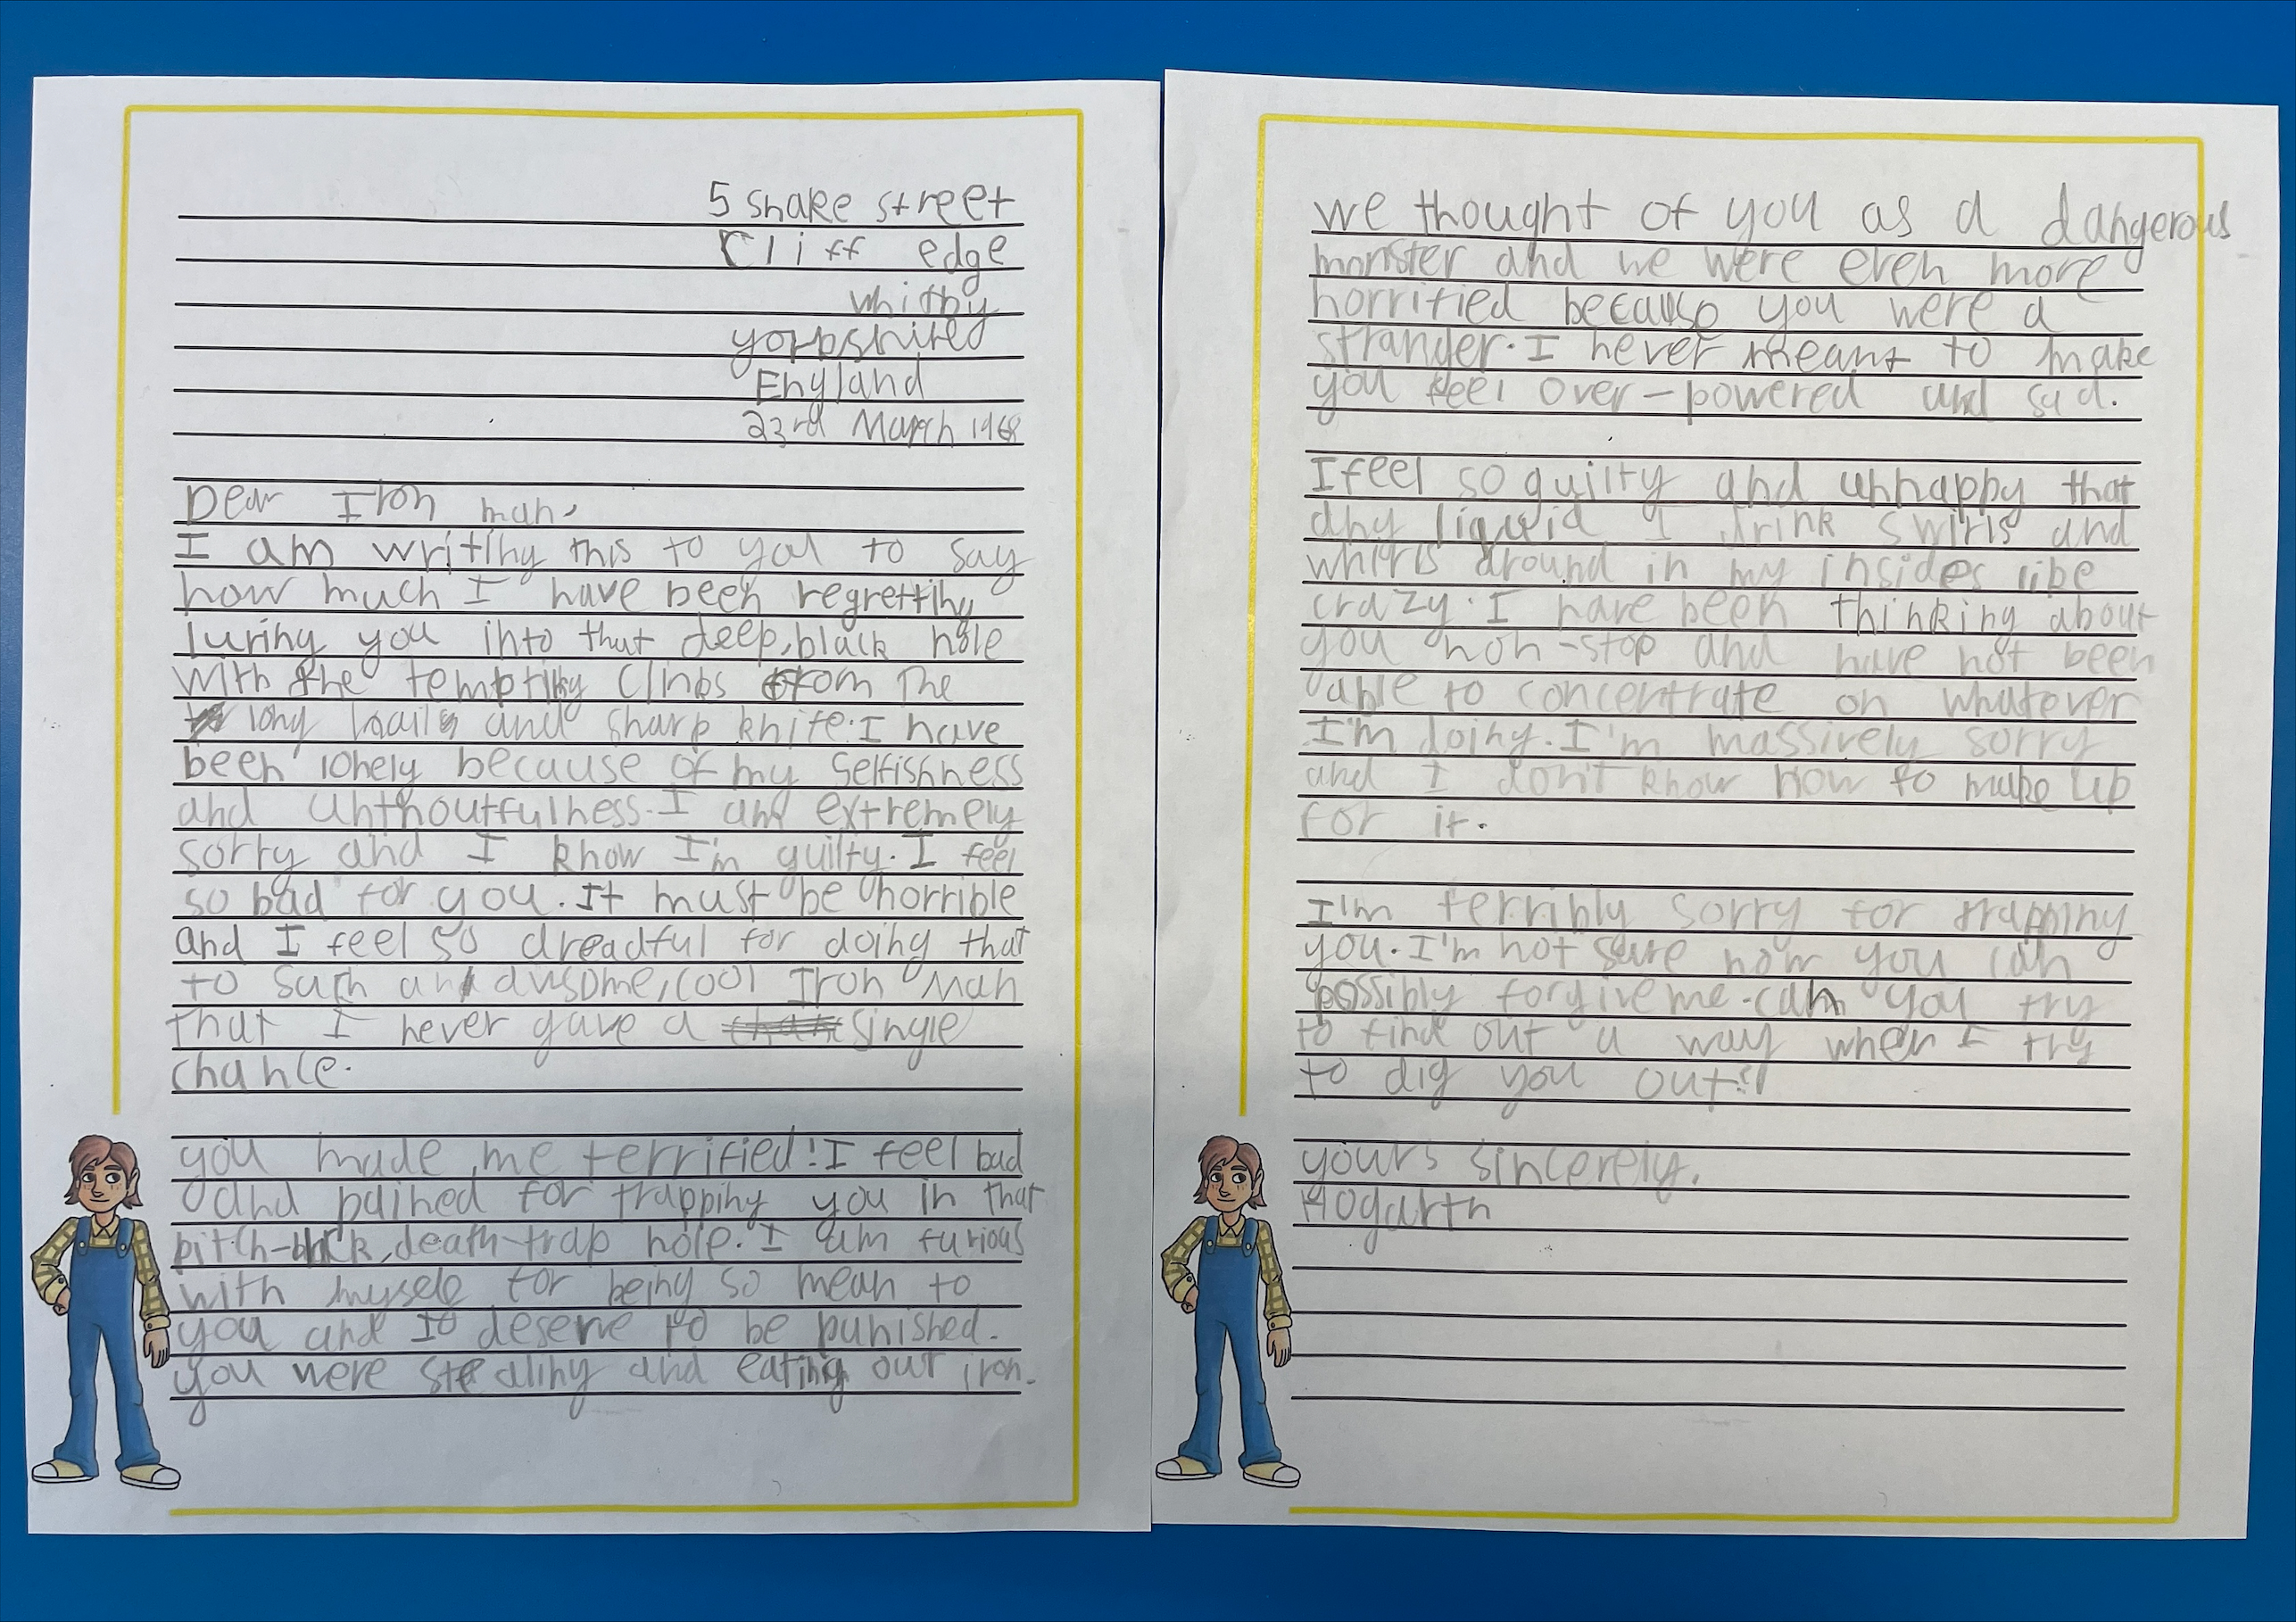 5 snake street
Cliff edge
whitby
yorkshire
England
23rd March 1968
Dear Iron man,
I am writing this to you to say
how much I have been regretting
luring you into that deep, black hole
with the tempting clinks from the
long nails and sharp knife. I have
been lonely because of my selfishness
and unthoutfulness. I am extremely
sorry and I know I'm guilty. I feel
so bad for you. It must be horrible
and I feel so dreadful for doing that
to such an awsome, cool Iron Man
that I never gave a single
chance.
you made me terrified! I feel bad
and pained for trapping you in that
pitch-black, death-trap hole. I am furious
with myself for being so mean to
you and I deserve to be punished.
you were stealing and eating our iron.
we thought of you as a dangerous
monster and we were even more
horrified because you were a
stranger. I never meant to make
you feel over-powered and sad.
I feel so guilty and unhappy that
any liquid I drink swirls and
whirls around in my insides like
crazy. I have been thinking about
you non-stop and have not been
able to concentrate on whatever
I'm doing. I'm massively sorry
and I don't know how to make up
for it.
I'm terribly sorry for trapping
you. I'm not sure how you can
possibly forgive me. can you try
to find out a way when I try
to dig you out?
yours sincerely,
Hogarth